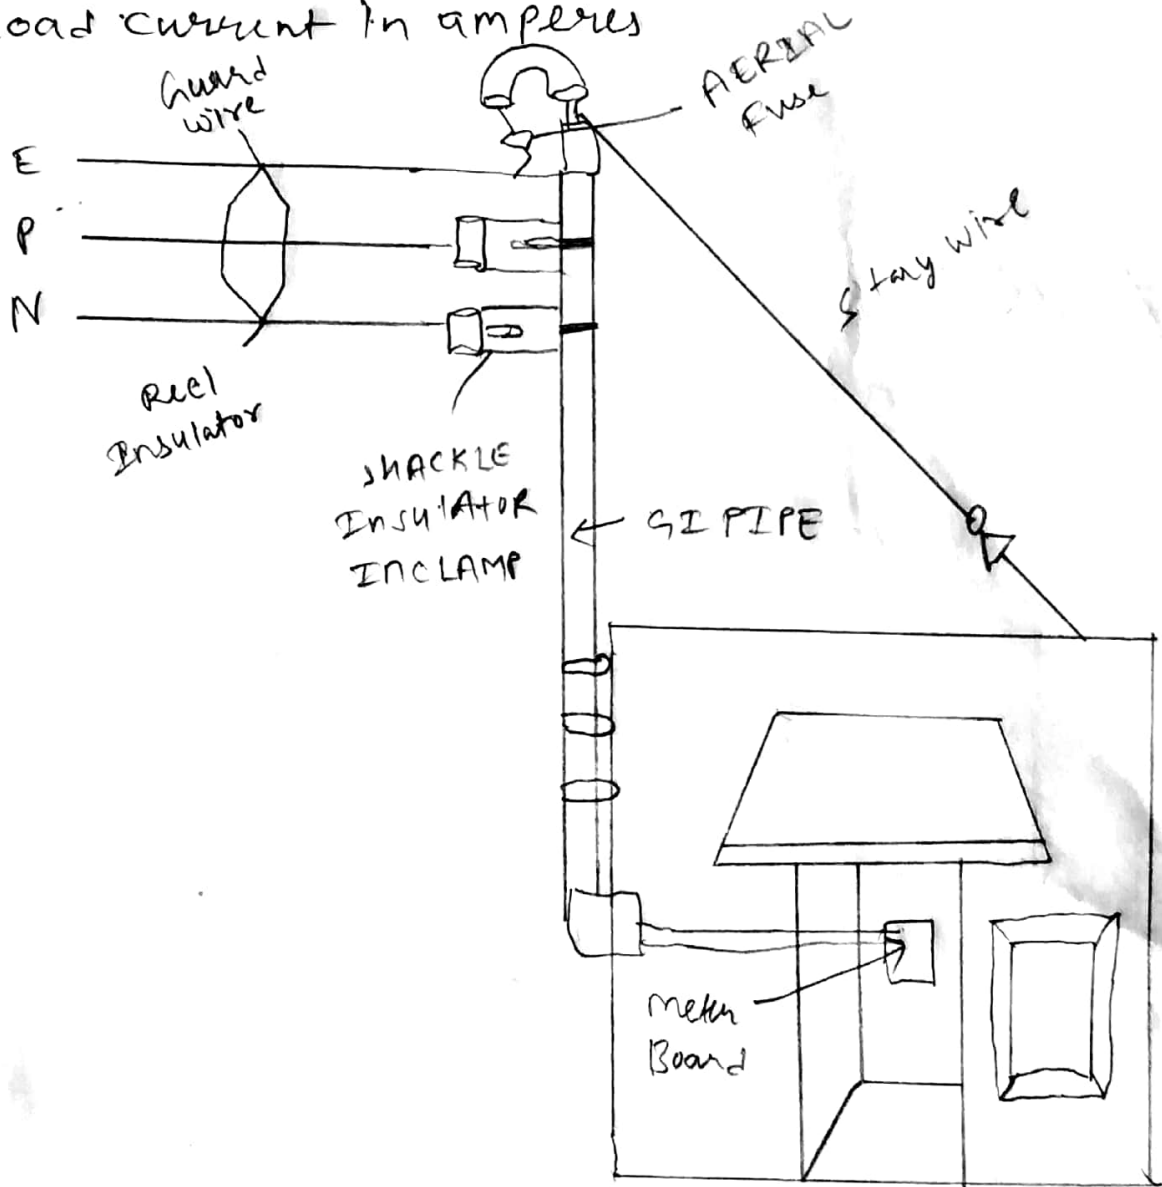 oad current in amperes
Guard
wire
AERIAL
Fuse
E
P
N
Stay wire
Reel
Insulator
SHACKLE
InsulAtoR
InCLAMP
GI PIPE
Meter
Board